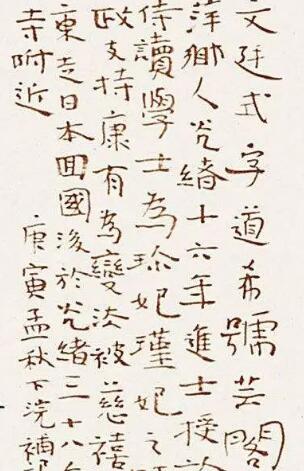 文廷式字道希號芸閣
萍鄉人光緒十六年進士授
侍讀學士為珍妃瑾妃之
政支持康有為變法被慈禧
東走日本回國後於光緒三十八
寺附近
庚寅孟秋下浣補